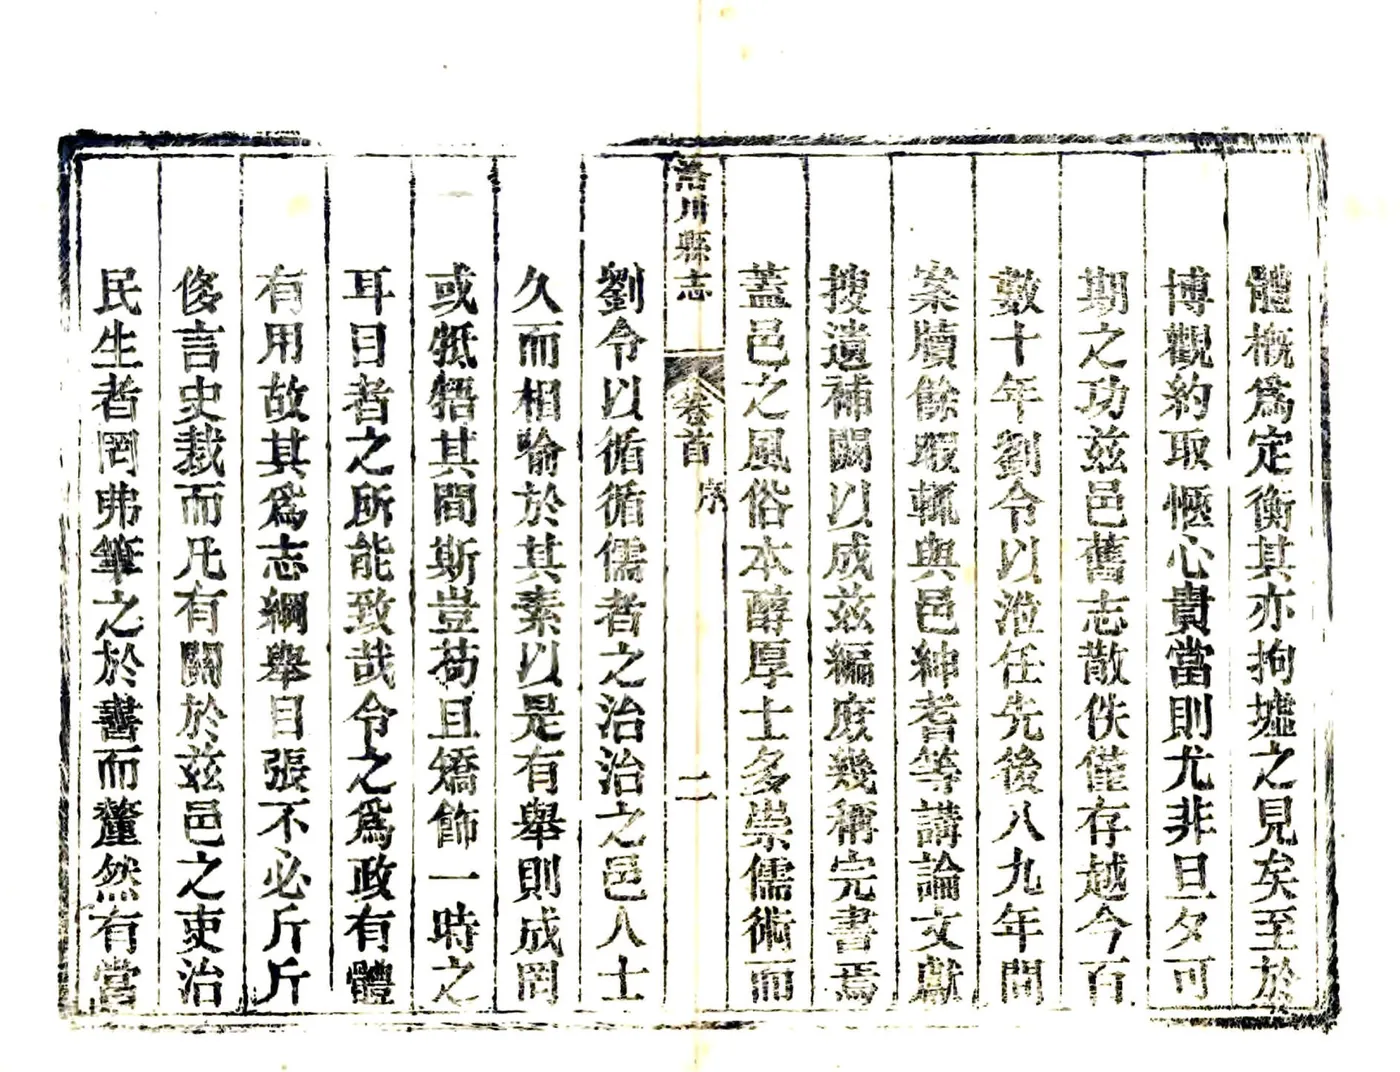 體概爲定衡其亦拘墟之見矣至於
博觀約取愜心貴當則尤非旦夕可
期之功兹邑舊志散佚僅存越今百
數十年劉令以涖任先後八九年間
案牘餘暇輒與邑紳耆等講論文獻
搜遺補闕以成兹編庶幾稱完書焉
蓋邑之風俗本醇厚士多崇儒術而
洛川縣志
卷首
序
二
劉令以循循儒者之治治之邑人士
久而相喻於其素以是有舉則成罔
或牴牾其間斯豈苟且矯飾一時之
耳目者之所能致哉令之爲政有體
有用故其爲志綱舉目張不必斤斤
侈言史裁而凡有關於兹邑之吏治
民生者罔弗筆之於書而釐然有當